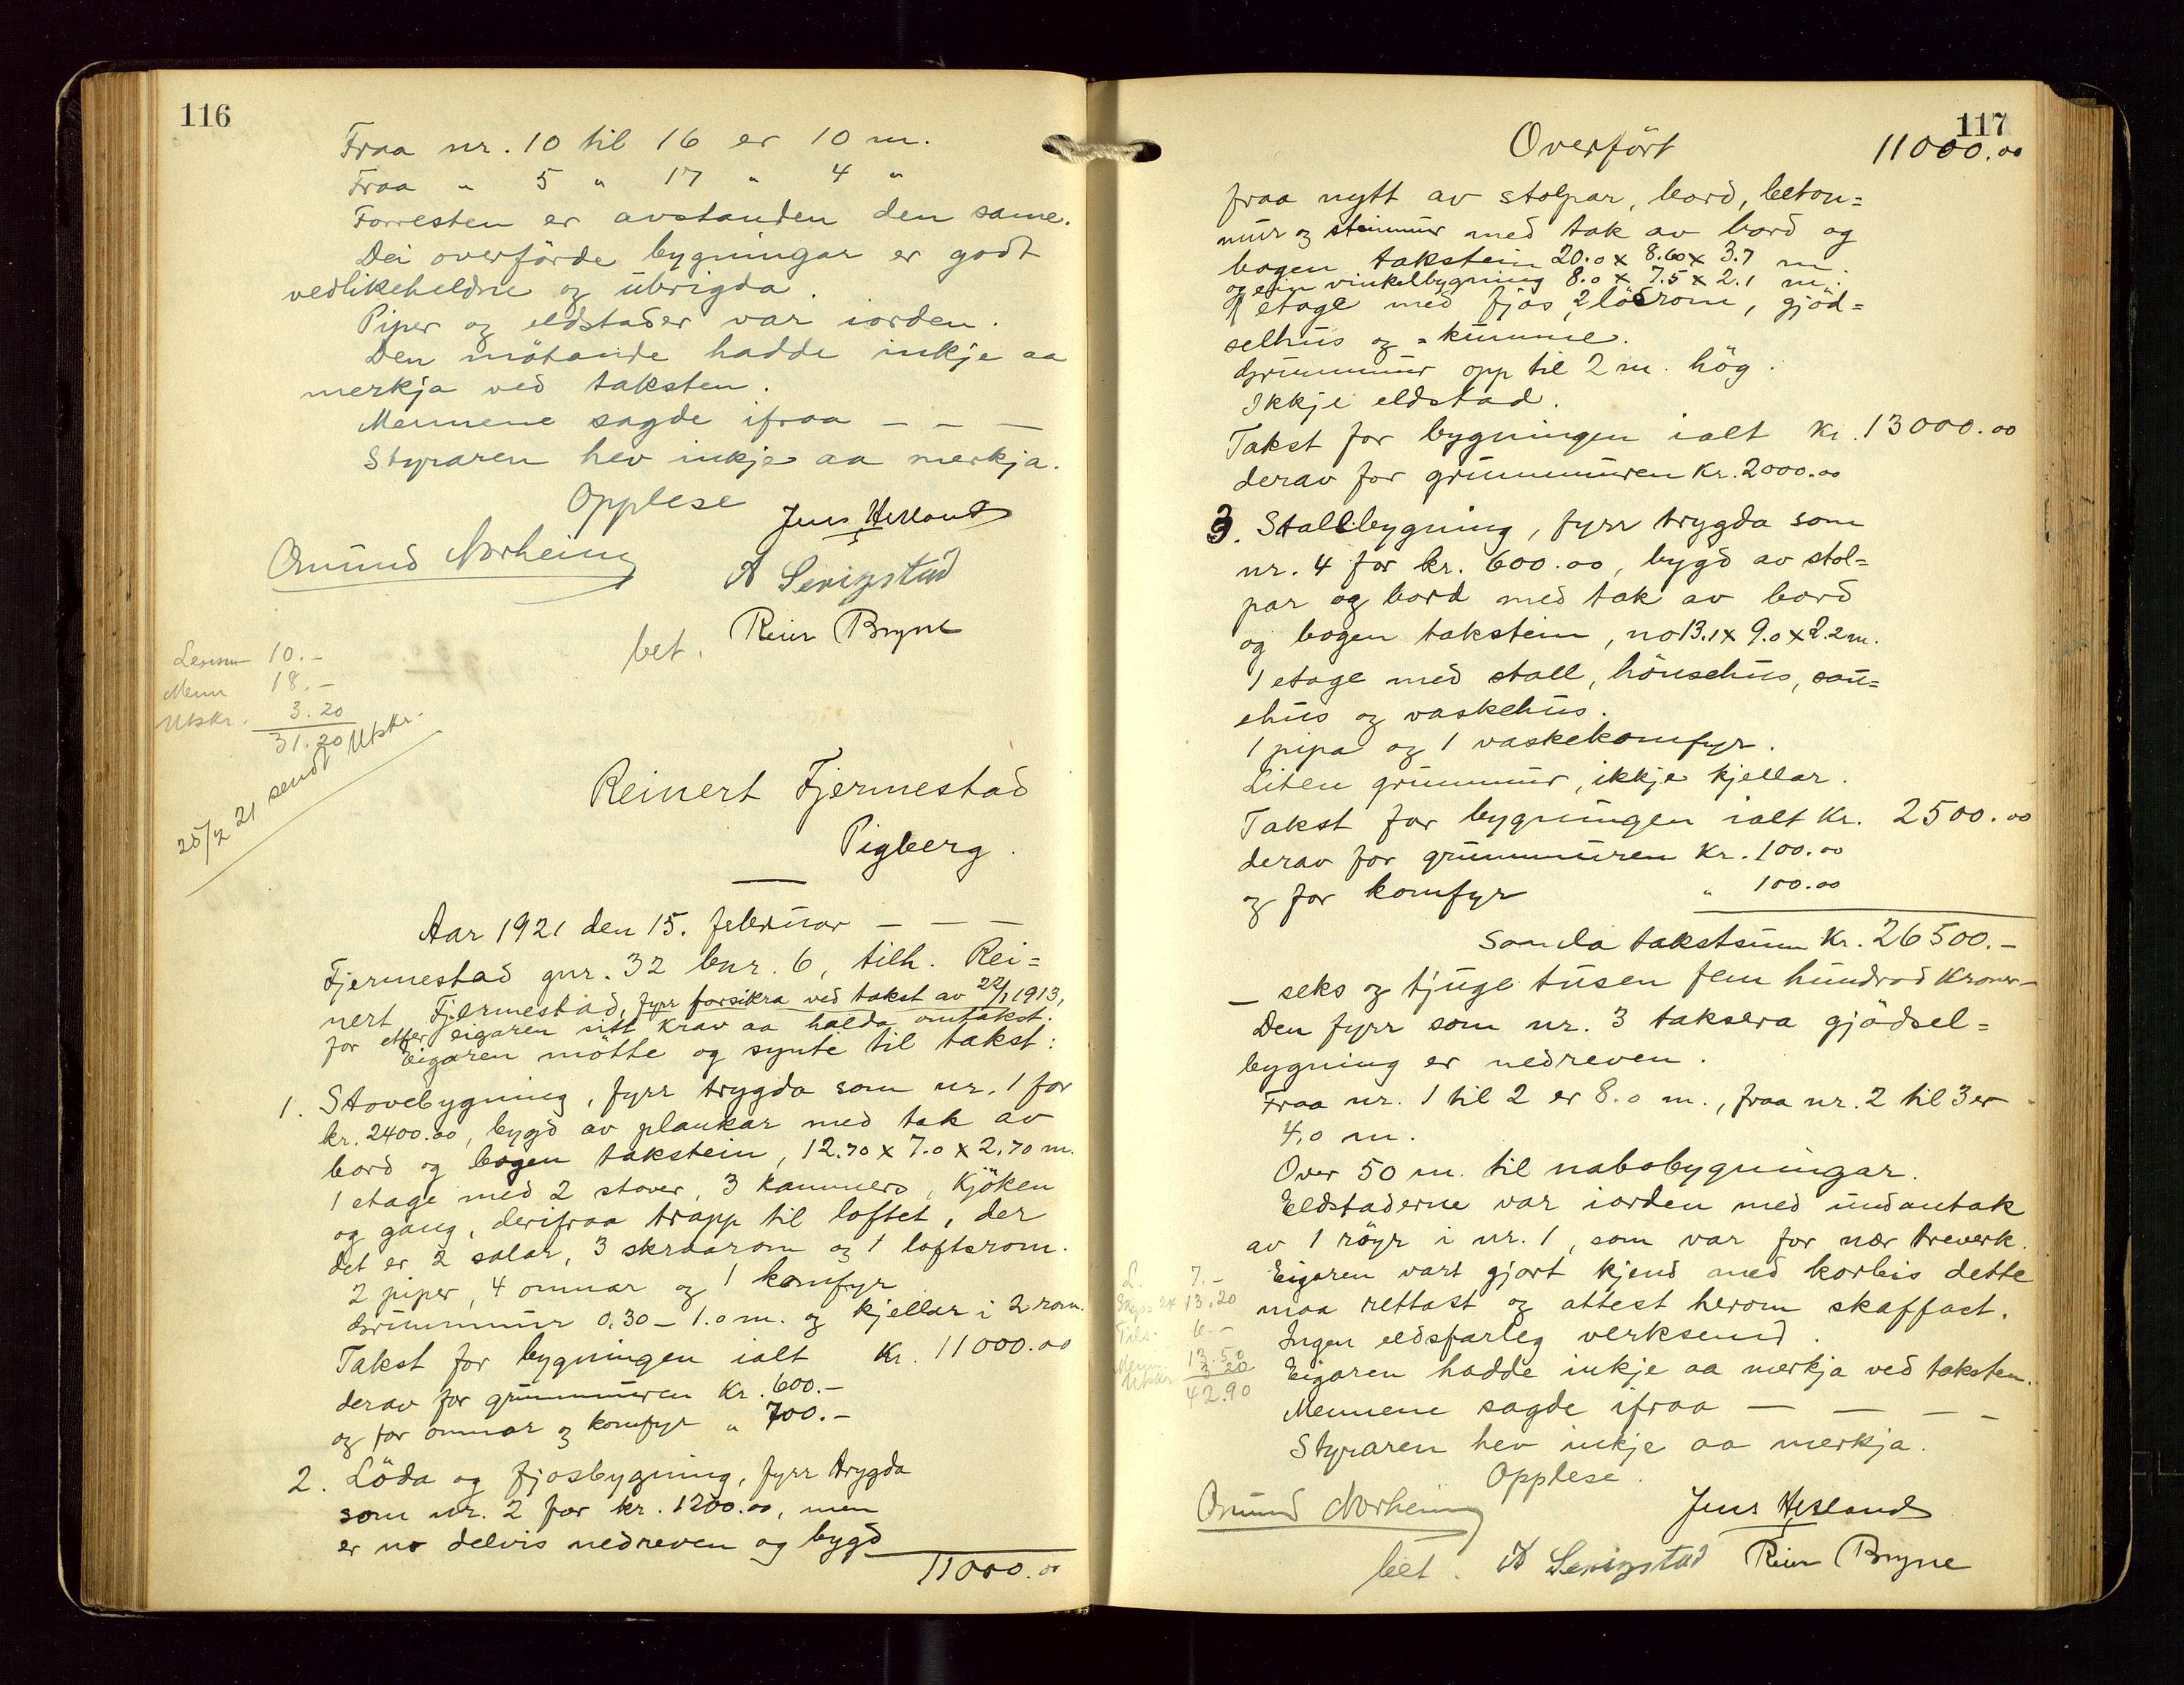 116
Fraa nr. 10 til 16 er 10 m.
Fraa " 5 " 17 " 4 "
Forresten er avstanden den same.
Dei overförde bygningar er godt
vedlikeheldne og übrigda.
Piper og eldstader var iorden.
Den mötande hadde inkje aa
merkja ved taksten.
Mennene sagde ifraa — — —
Styraren hev inkje aa merkja.
Opplese
Jens Hesland
Omund Norheim
A Serigstad
bet. Reier Bryne
Lensm 10.-
Menn 18.-
Utskr. 3.20
31.20
25/2 21 sendt Utskr.
Reinert Fjermestad
Pigberg.
Aar 1921 den 15. februar — — —
Fjermestad gnr. 32 bnr. 6, tilh. Rei=
nert Fjermestad, fyrr forsikra ved takst av 22/1 1913,
for etter eigaren sitt krav aa halda omtakst.
Eigaren mötte og synte til takst:
1. Stovebygning, fyrr trygda som nr. 1 for
kr. 2400.00, bygd av plankar med tak av
bord og bogen takstein, 12.70 x 7.0 x 2.70 m.
1 etage med 2 stover, 3 kammers, Kjöken
og gang, derifraa trapp til loftet, der
det er 2 salar, 3 skraarom og 1 loftsrom.
2 piper, 4 omnar og 1 komfyr
Grunnmur 0.30 – 1.0 m. og kjellar i 2 rom.
Takst for bygningen ialt Kr. 11000.00
derav for grunnmuren Kr. 600.-
og for omnar og komfyr " 700.-
2. Löda og fjosbygning, fyrr trygda
som nr. 2 for kr. 1200.00, men
er no delvis nedreven og bygd
11000.00
117
Overfört 11000.00
fraa nytt av stolpar, bord, beton=
mur og steinmur med tak av bord og
bogen takstein 20.0 x 8.60 x 3.7 m.
og ein vinkelbygning 8.0 x 7.5 x 2.1 m.
1 etage med fjos, 2 lödrom, gjöd=
selhus og =kumme.
Grunnmur opp til 2 m. hög.
Ikkje eldstad.
Takst for bygningen ialt Kr. 13000.00
derav for grunnmuren Kr. 2000.00
3. Stallbygning, fyrr trygda som
nr. 4 for kr. 600.00, bygd av stol=
par og bord med tak av bord
og bogen takstein, no 13.1 x 9.0 x 2.2 m.
1 etage med stall, hönsehus, sau=
ehus og vaskehus.
1 pipa og 1 vaskekomfyr.
Liten grunnmur, ikkje kjellar.
Takst for bygningen ialt Kr. 2500.00
derav for grunnmuren Kr. 100.00
og for komfyr " 100.00
Samla takstsum Kr. 26500.-
— seks og tjuge tusen fem hundrad Kroner —
Den fyrr som nr. 3 taksera gjödsel=
bygning er nedreven.
Fraa nr. 1 til 2 er 8.0 m., fraa nr. 2 til 3 er
4,0 m.
Over 50 m. til nabobygningar.
Eldstaderne var iorden med undantak
av 1 röyr i nr. 1, som var for nær treverk.
Eigaren vart gjort kjend med korleis dette
maa rettast og attest herom skaffast.
Ingen eldsfarleg verksemd.
Eigaren hadde inkje aa merkja ved taksten.
Mennene sagde ifraa — — — —
Styraren hev inkje aa merkja.
Opplese.
L. 7.-
13.20
6.-
Menn 13.50
Utskr. 3.20
42.90
Omund Norheim
Jens Hesland
bet. A Serigstad Reier Bryne